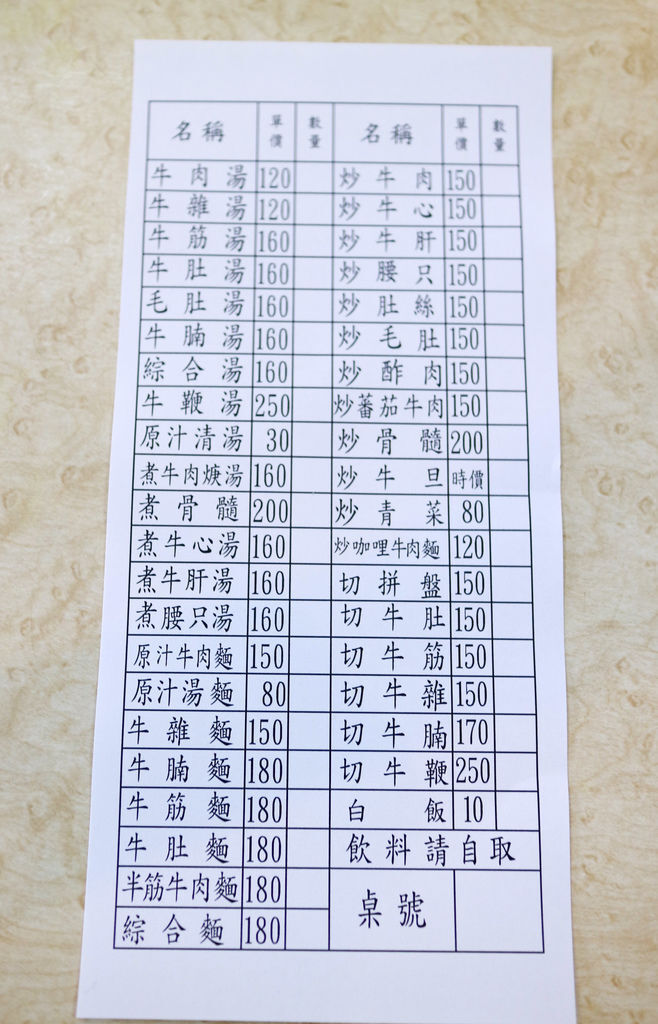 名稱 單價 數量 名稱 單價 數量
牛肉湯 120 炒牛肉 150
牛雜湯 120 炒牛心 150
牛筋湯 160 炒牛肝 150
牛肚湯 160 炒腰只 150
毛肚湯 160 炒肚絲 150
牛腩湯 160 炒毛肚 150
綜合湯 160 炒酢肉 150
牛鞭湯 250 炒蕃茄牛肉 150
原汁清湯 30 炒骨髓 200
煮牛肉焿湯 160 炒牛旦 時價
煮骨髓 200 炒青菜 80
煮牛心湯 160 炒咖哩牛肉麵 120
煮牛肝湯 160 切拼盤 150
煮腰只湯 160 切牛肚 150
原汁牛肉麵 150 切牛筋 150
原汁湯麵 80 切牛雜 150
牛雜麵 150 切牛腩 170
牛腩麵 180 切牛鞭 250
牛筋麵 180 白飯 10
牛肚麵 180 飲料請自取
半筋牛肉麵 180 桌號
綜合麵 180